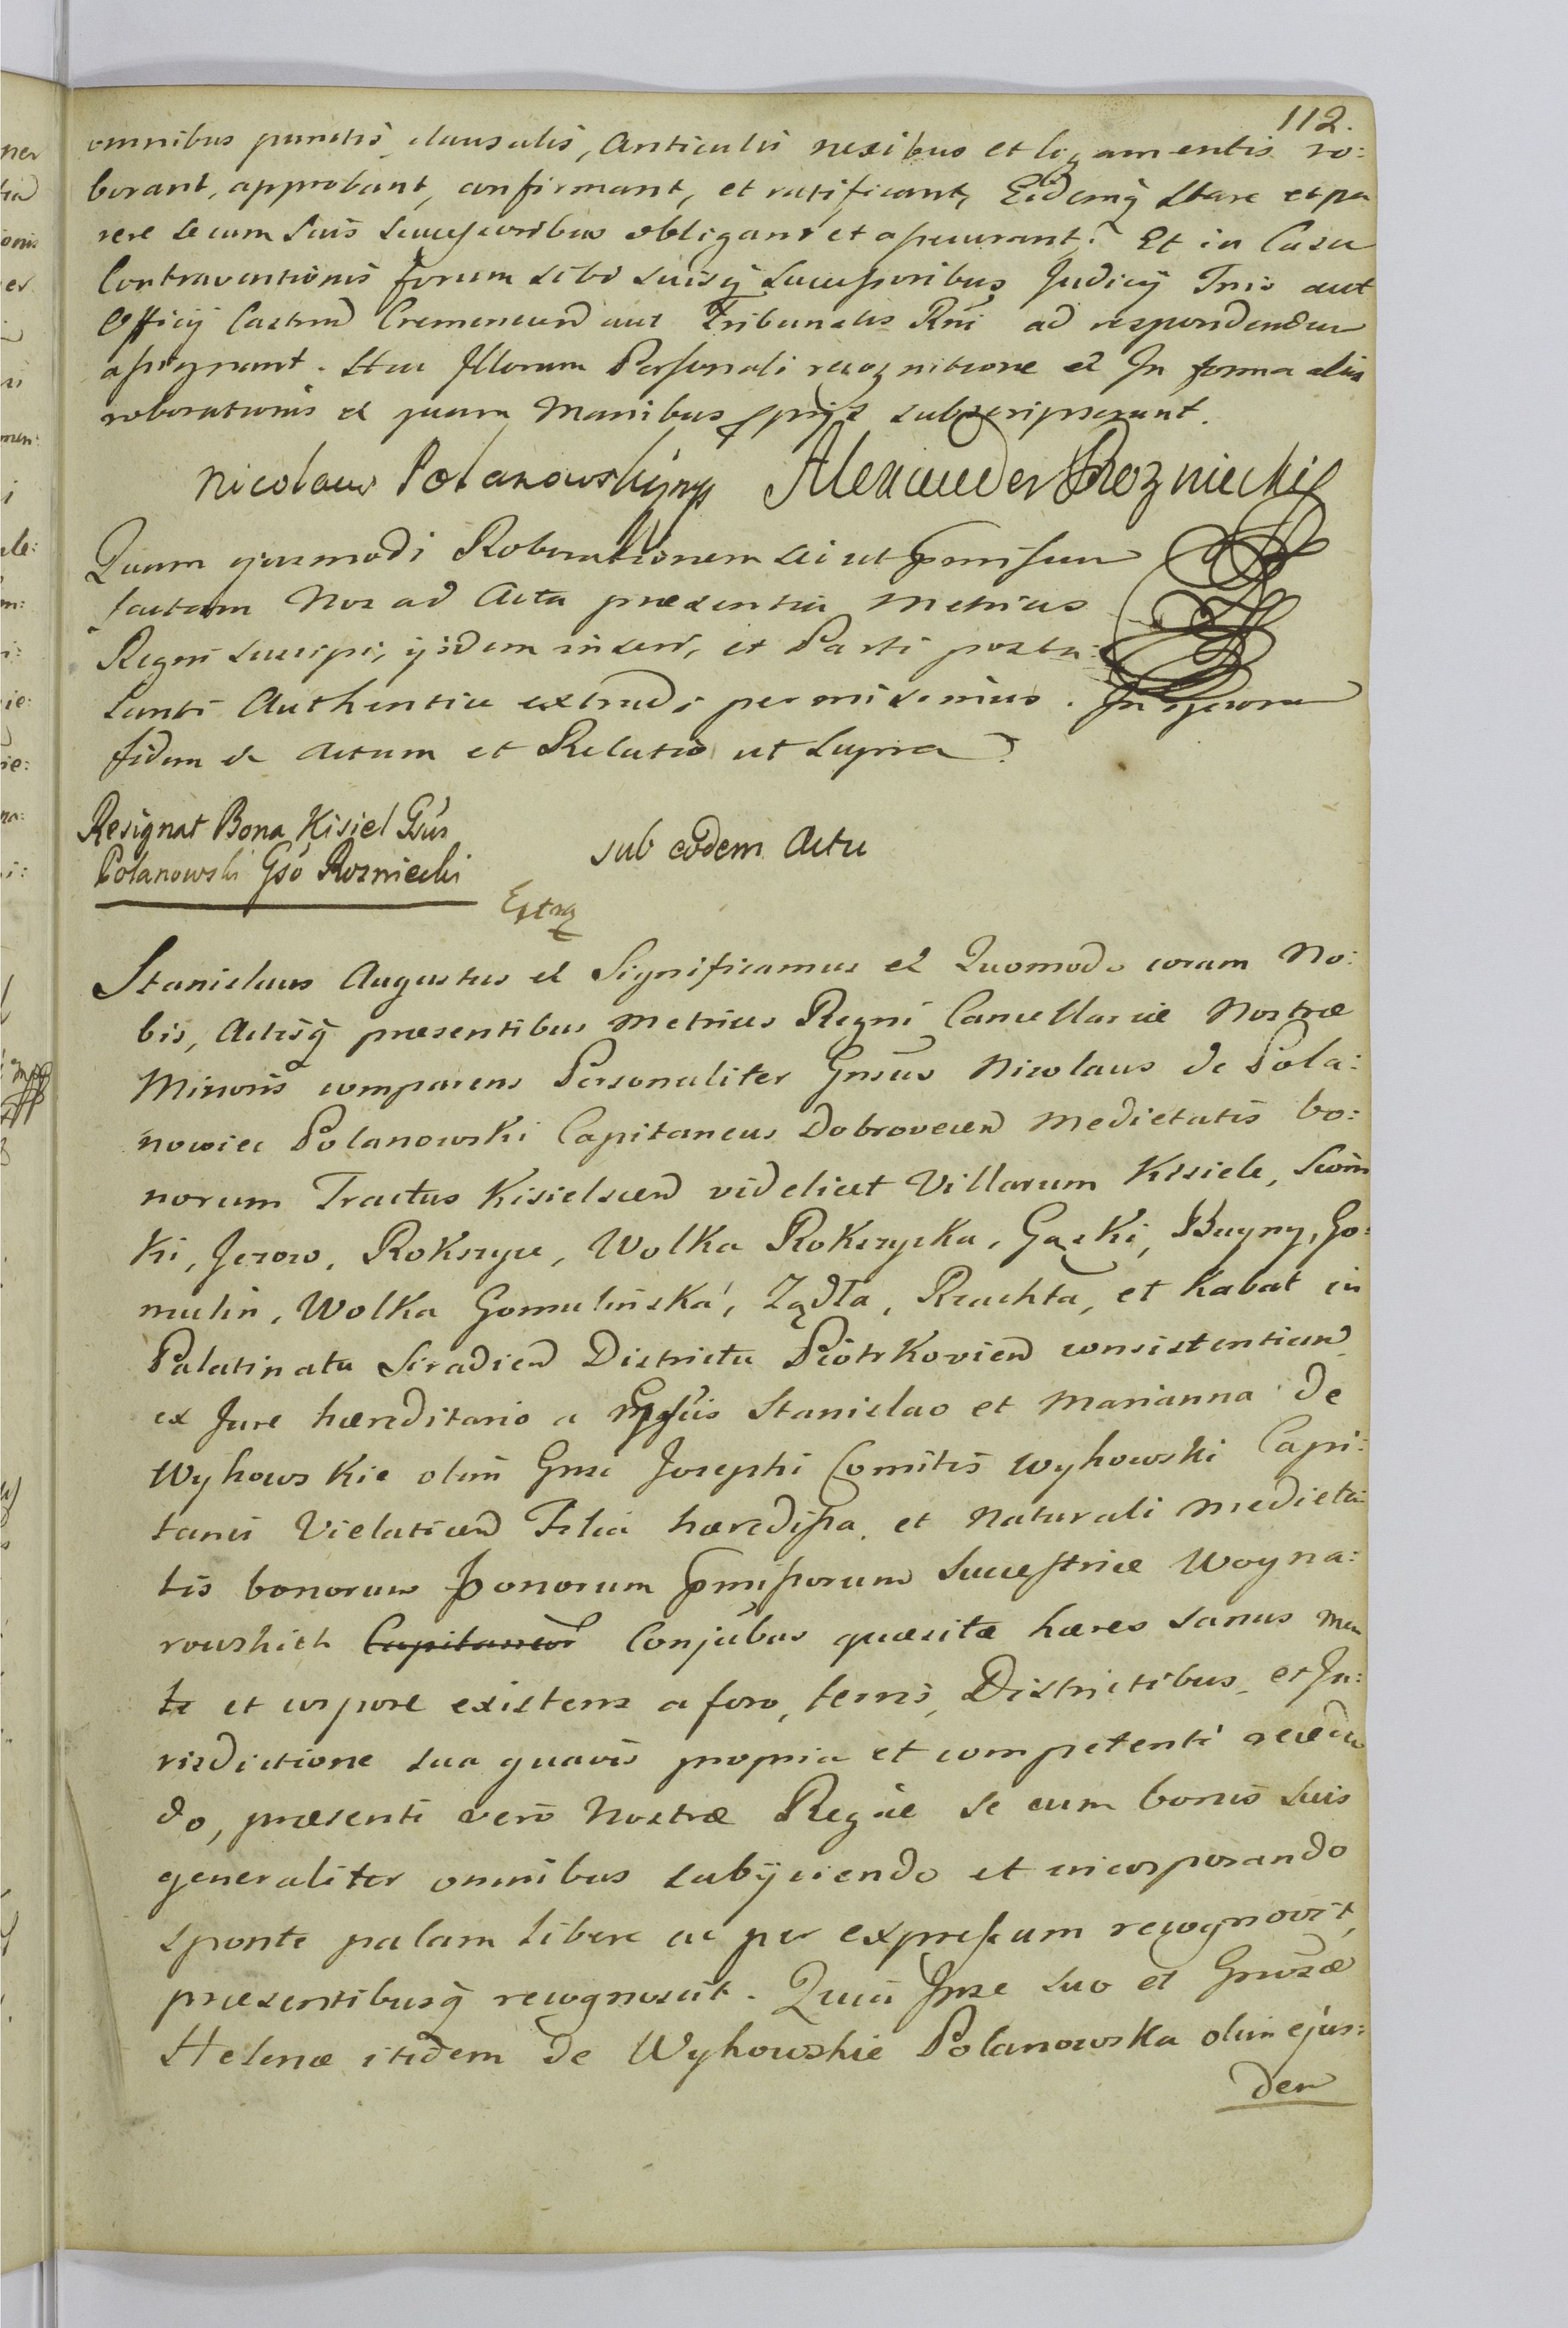 112.
omnibus punctis, clausulis, Articulis nexibus et ligamentis ro:
borant, approbant, confirmant, et ratificant, Eidemq̃ Stare et pa
rere se cum Suis Successoribus obligant et assecurant. Et in Casu
Contraventionis forum sibi suisq̃ Successoribus Judicij Tris aut
Officij Castren̄ Cremenecen̄ aut Tribunalis Rni ad respondendum
assignant. Stan Illorum Personali recognitione et In forma
roborationis et quam Manibus pprijs subscripserunt.
Nicolaus Polanowski mp Alexander Rozniecki
Quam ejusmodi Roborationem ac ut pmissum
factam Nos ad Acta præsentia Metrices
Regni suscipi, ijsdem inseri, et Parti postu:
lanti Authentice extradi permisimus. In quorum
fidem et Actum et Relatio ut supra
Resignat Bona Kisiel Gsus
Polanowski Gso Rozniecki
sub eodem Actu
Extrą
Stanislaus Augustus et Significamus et Quomodo coram No:
bis, Actisq̃ præsentibus Metrices Regni Cancellariæ Nostræ
Minoris comparens Personaliter Gnsus Nicolaus de Pola:
nowice Polanowski Capitaneus Dobrovecen̄ Medietatis bo:
norum Tractus Kisielscen̄ videlicet Villarum Kisiele, Siom
ki, Jezow, Rokszyce, Wolka Rokszycka, Gąski, Bugny, Go:
mulin, Wolka Gomulińska, Ządła, Rzachta, et Kabat in
Palatinatu Siradien̄ Districtu Piotrkovien̄ consistentium
ex Jure hæreditario a Stanislao et Marianna de
Wyhowskie olim Gnsi Josephi Comitis Wyhowski Capi:
tanei Vielaticen̄ Filia hæredissa et Naturali medieta
tis bonorum bonorum pmissorum Successtrice Woyna:
rowskich Capitaneor̄ Conjubus quæsitæ hæres sanus Men
te et corpore existens a foro, terris, Districtibus, et Ju:
risdictione sua quavis propria et competenti receden
do, præsenti vero Nostræ Regiæ se cum bonis suis
generaliter omnibus subijciendo et incorporando
sponte palam libere ac per expressum recognovit
præsentibusq̃ recognoscit. Quia Ipse suo et Gnosæ
Helenæ itidem de Wyhowskie Polanowska olim ejus:
dem